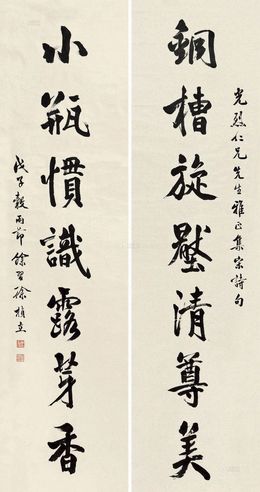 光烈仁兄先生雅正集宗詩句
銅槽旋壓清尊美
小瓶慣識露芽香
戊子穀雨節 徐植立